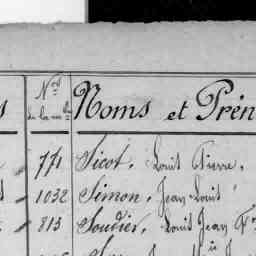 Nos de la mle Noms et Prén
771 Sicot, Louis Pierre,
1032 Simon, Jean Louis
813 Soudier, Louis Jean Fr